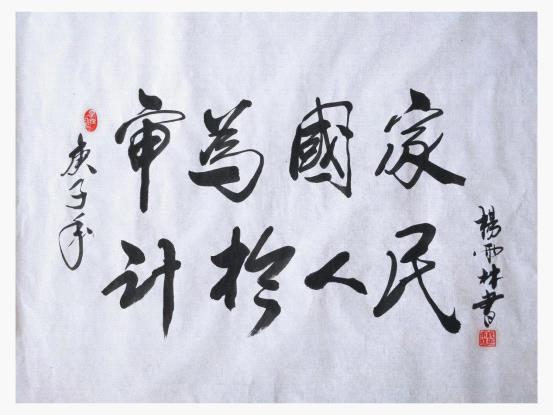 庚子年
审為國家
计於人民
楊雨林書